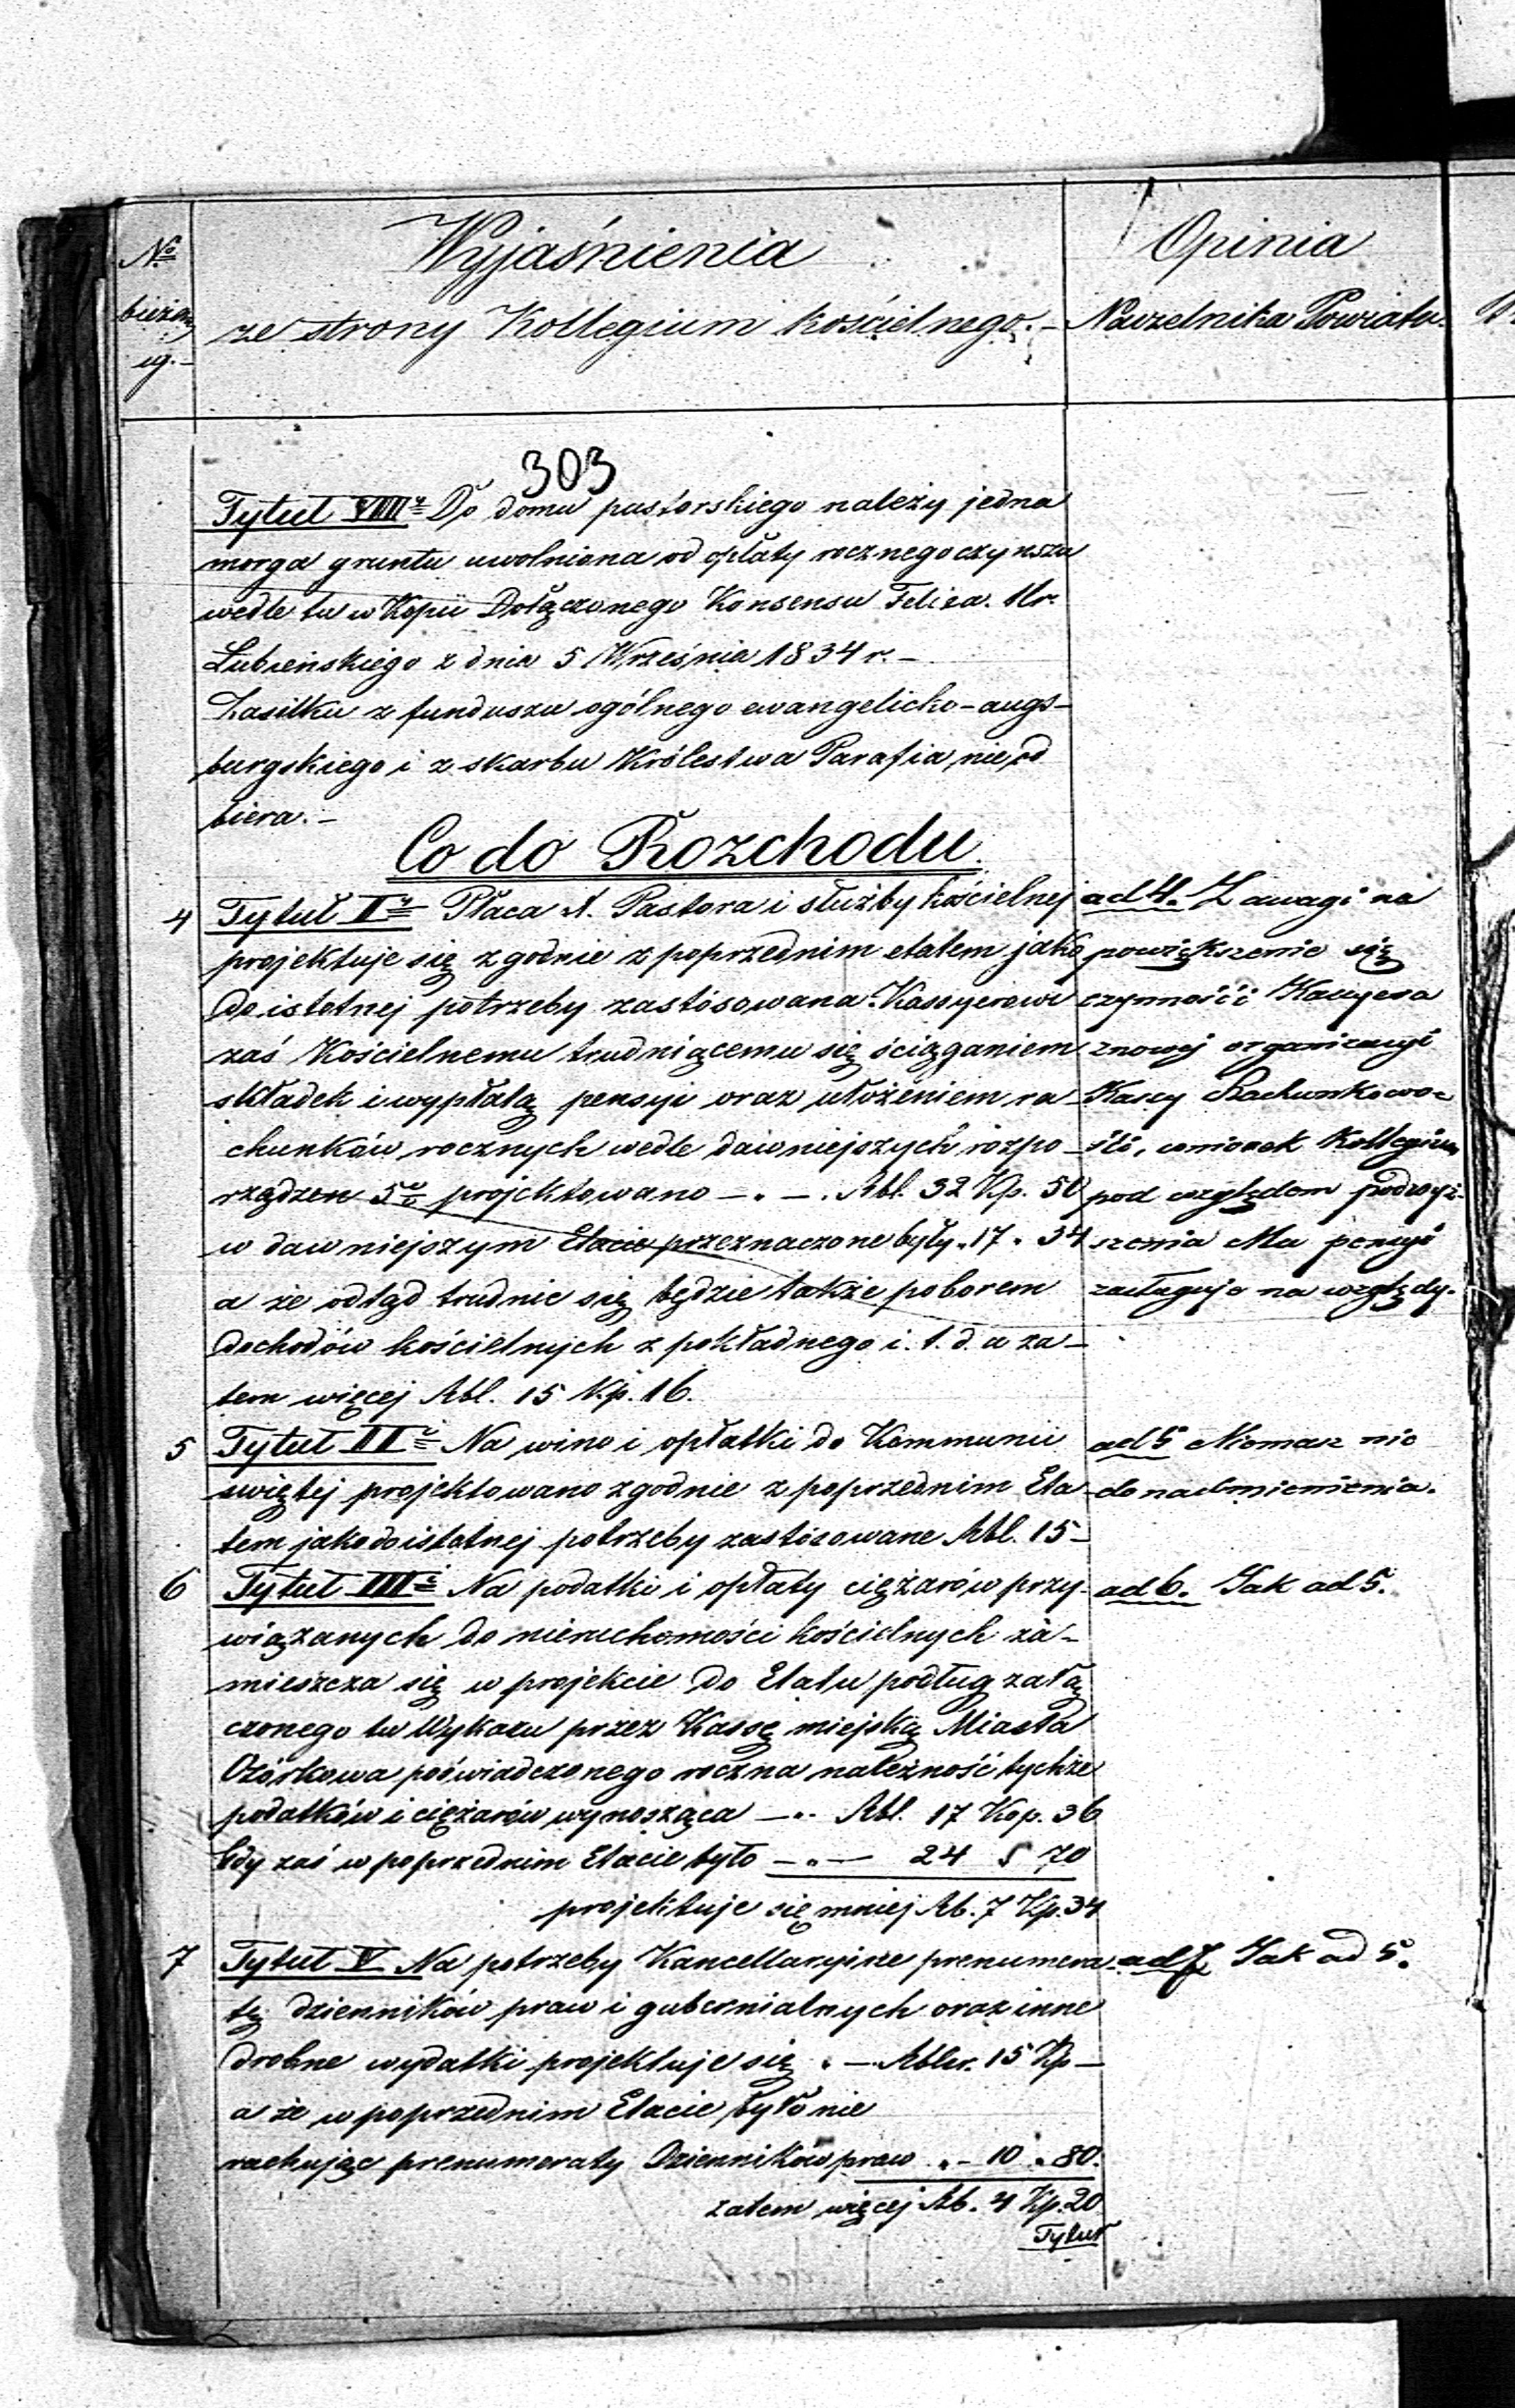 No
bieżą
cy.-
Wyjaśnienia
ze strony Kollegium kościelnego.-
Opinia
Naczelnika Powiatu.
303
Tytuł VIIIy Do domu pastorskiego należy jedna
morga gruntu uwolniona od opłaty rocznego czynszu
wedle tu w Kopii Dołączonego Konsensu Felixa Hr.
Łubieńskiego z dnia 5 Września 1834 r.-
Zasiłku z funduszu ogólnego ewangelicko-augs-
burgskiego i z skarbu Królestwa Parafia nie od
biera.-
Co do Rozchodu.
4 Tytuł Iy Płaca X. Pastora i służby kościelnej
projektuje się zgodnie z poprzednim etatem jako
do istotnej potrzeby zastósowana. Kassyerowi
zaś Kościelnemu trudniącemu się ściąganiem
składek i wypłatą pensyi oraz ułożeniem ra-
chunków rocznych wedle dawniejszych rozpo-
rządzen projektowano - " - . Rbl. 32 Kp. 50
w dawniejszym Etacie przeznaczone były " 17 " 34
a że odtąd trudnić się będzie także poborem
dochodów kościelnych z pokładnego i. t. d. a za-
tem więcej Rbl. 15 Kp. 16.
5 Tytuł IIi Na wino i opłatki do Kommunii
świętej projektowano zgodnie z poprzednim Eta-
tem jako do istotnej potrzeby zastósowane Rbl. 15-
6 Tytuł IIIi Na podatki i opłaty ciężarów przy-
wiązanych do nieruchomości kościelnych za-
mieszcza się w projekcie do Etatu podług załą
czonego tu Wykazu przez Kassę miejską Miasta
Ozórkowa poświadczonego roczna należność tychże
podatków i ciężarów wynosząca - " - Rbl. 17 Kop. 36
Gdy zaś w poprzednim Etacie było - " - 24 70
projektuje się mniej Rb. 7 Kp. 34
7 Tytuł V Na potrzeby Kancellaryine prenumera
tę dzienników praw i gubernialnych oraz inne
drobne wydatki projektuje się " - Rbler. 15 Kp -
a że w poprzednim Etacie było nie
rachując prenumeraty Dzienników praw " - 10 " 80.
zatem więcej Rb. 4 Kp. 20
Tytuł
ad 4. Z uwagi na
powiększenie się
czynności Kassyera
z nowej organizacyi
Kassy Rachunkowo-
ści, wniosek Kollegium
pod względem podwyż-
szenia Mu pensyi
zasługuje na względy.
ad 5 Niemasz nic
do nadmienienia.
ad 6. Jak ad 5.
ad 7. Jak ad 5.